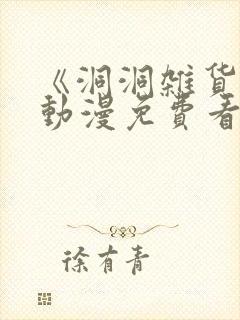 《洞洞雑货
動漫免費看
徐有青